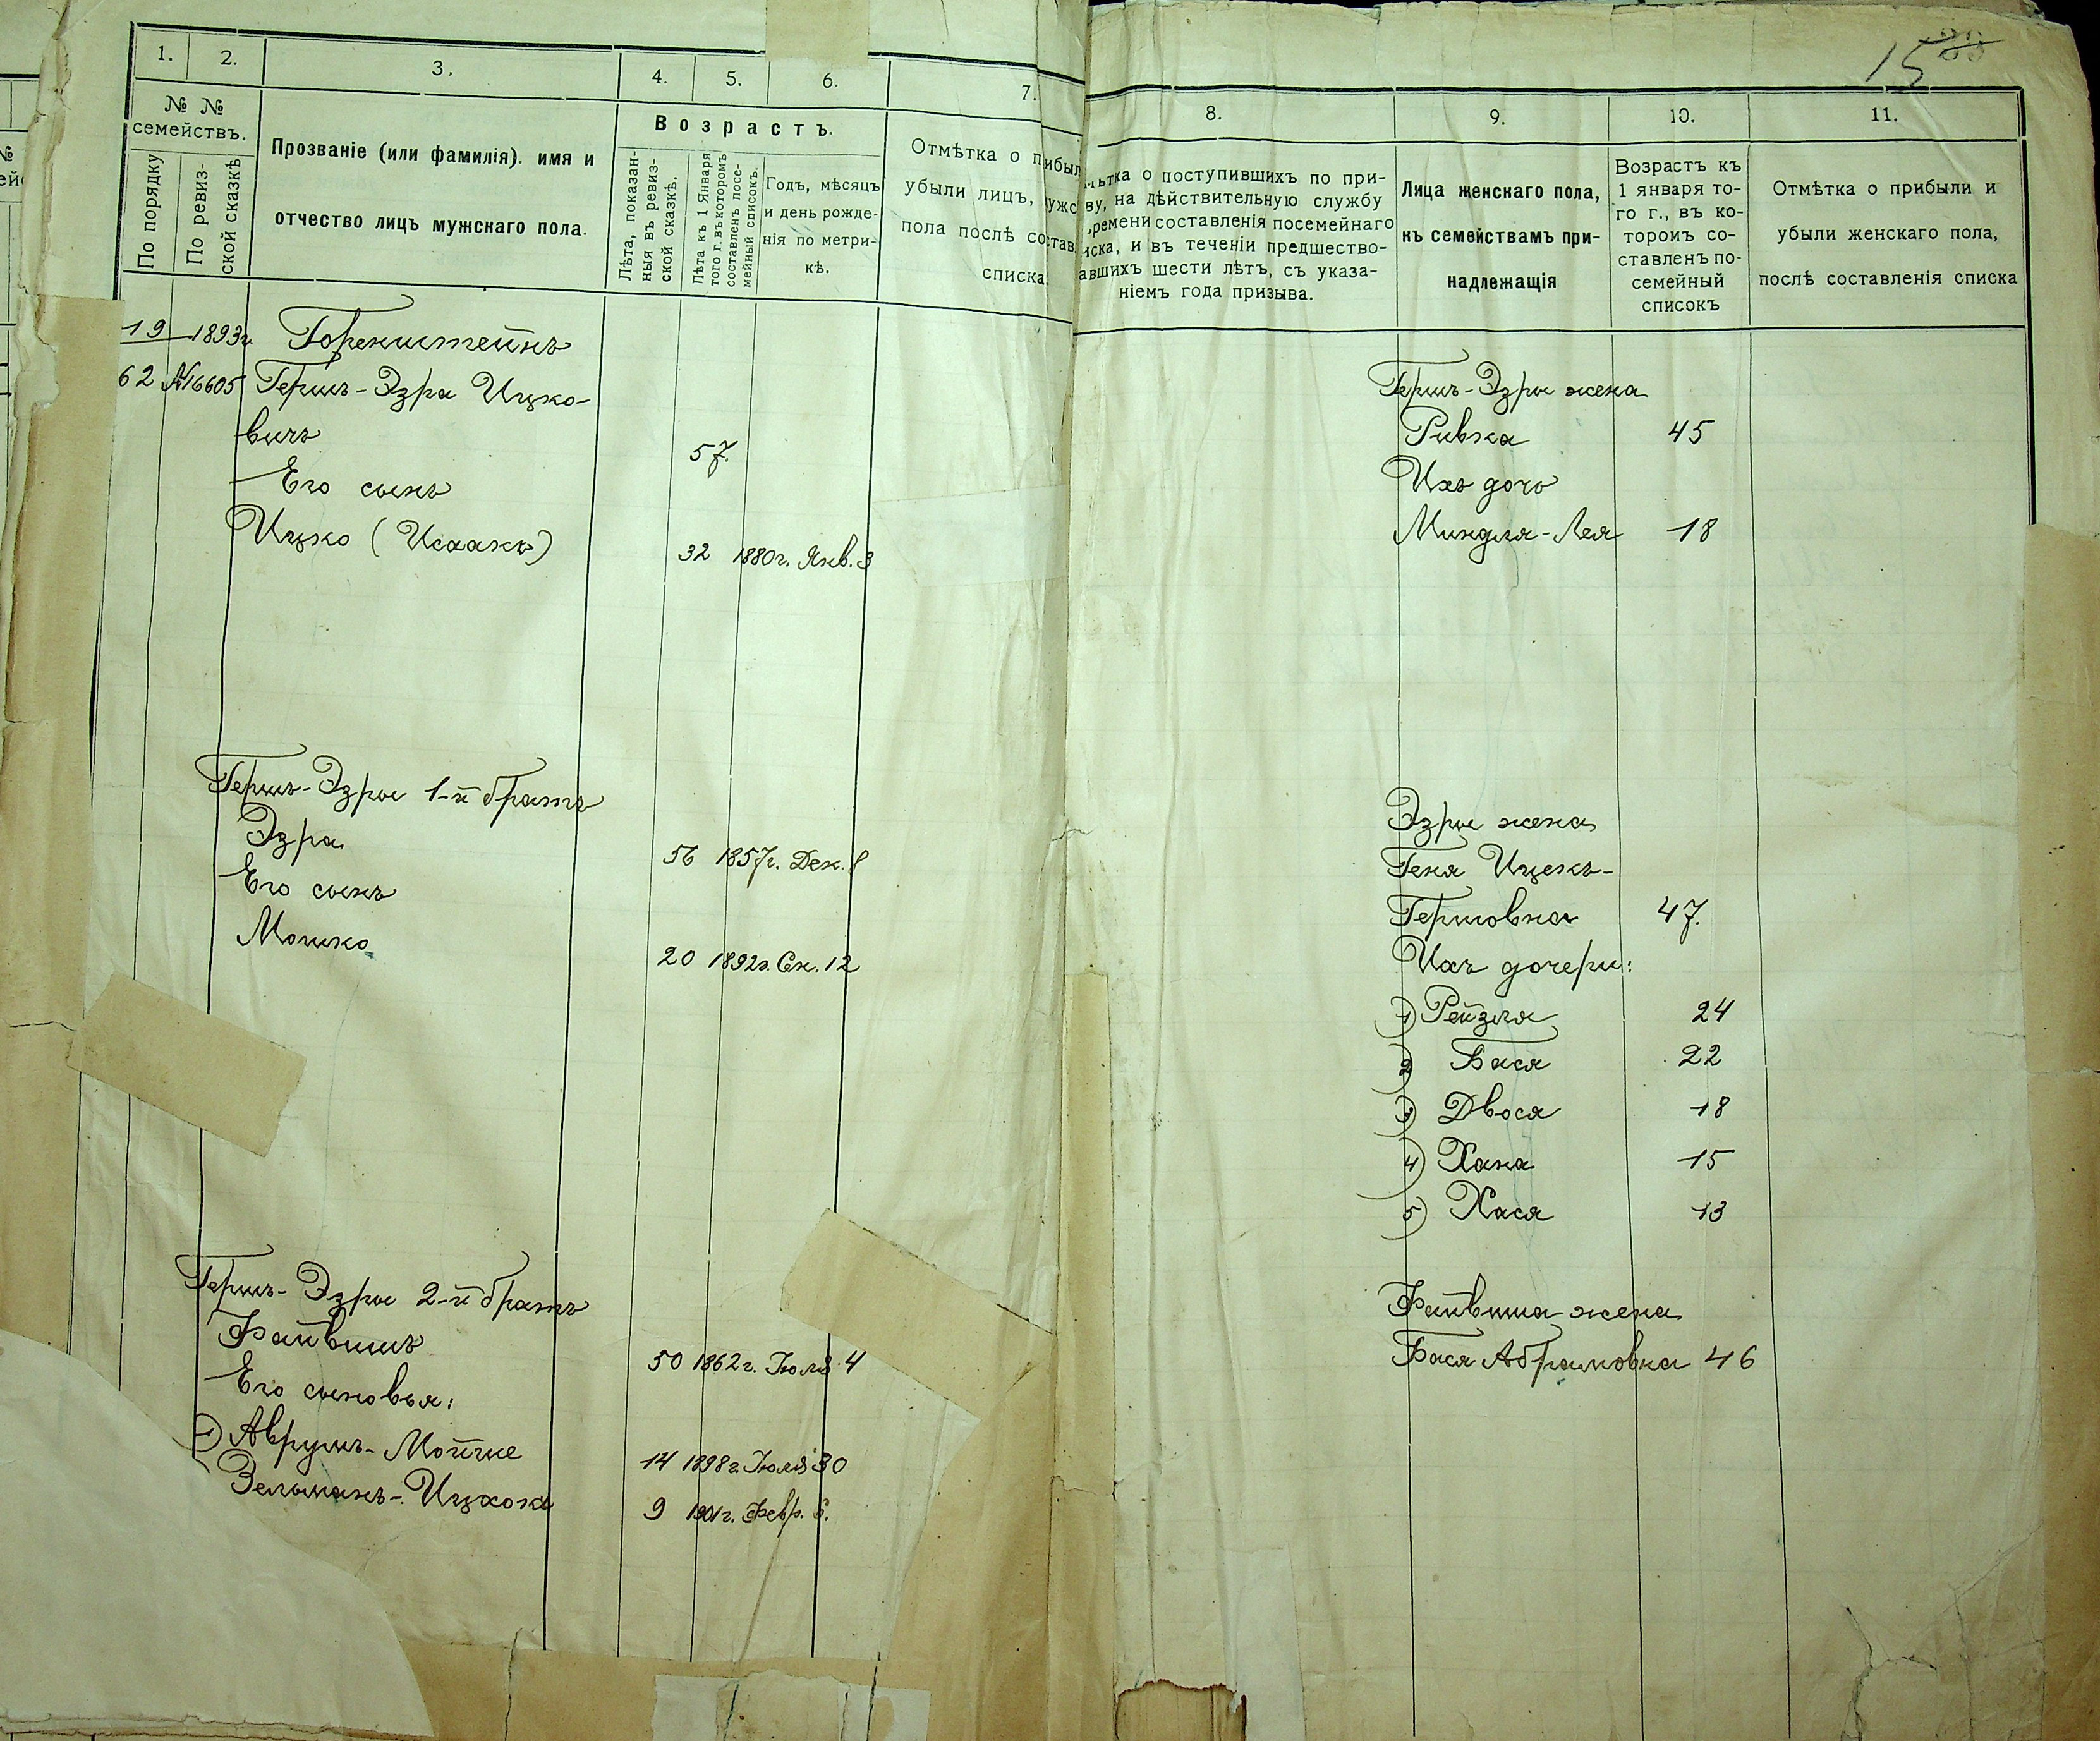 1.
2.
3.
4.
5.
6.
7.
№ №
семействъ.
По порядку
По ревиз-
ской сказкѣ
Прозваніе (или фамилія). имя и
отчество лицъ мужскаго пола.
Возрастъ.
Лѣта, показан-
ныя въ ревиз-
ской сказкѣ.
Лѣта къ 1 Января
того г. въ которомъ
составленъ посе-
мейный списокъ.
Годъ, мѣсяцъ
и день рожде-
нія по метри-
кѣ.
Отмѣтка о п
убыли лицъ,
пола послѣ со
списка.
19 1893г. Горенштейнъ
62 №16605 Гершъ-Эзра Ицко-
вичъ 57.
Его сынъ
Ицко (Исаакъ) 32 1880г. Янв. 3
Гершъ-Эзры 1-й братъ
Эзра 56 1857г. Дек. 8
Его сынъ
Мошко 20 1892г. Сен. 12
Гершъ-Эзры 2-й братъ
Файвишъ 50 1862г. Іюля 4
Его сыновья:
1) Аврумъ-Мойше 14 1898г. Іюля 30
Зельманъ-Ицхокъ 9 1901г. Февр. 6.
15
8.
9.
10.
11.
ѣтка о поступившихъ по при-
ву, на дѣйствительную службу
ремени составленія посемейнаго
иска, и въ теченіи предшество-
авшихъ шести лѣтъ, съ указа-
ніемъ года призыва.
Лица женскаго пола,
къ семействамъ при-
надлежащія
Возрастъ къ
1 января то-
го г., въ ко-
торомъ со-
ставленъ по-
семейный
списокъ
Отмѣтка о прибыли и
убыли женскаго пола,
послѣ составленія списка
Гершъ-Эзры жена
Ривка 45
Ихъ дочь
Миндля-Лея 18
Эзры жена
Геня Ицекъ-
Гершовна 47.
Ихъ дочери:
1) Рейзля 24
2) Бася 22
3) Двося 18
4) Хана 15
5) Хася 13
Файвиша жена
Бася Абрамовна 46